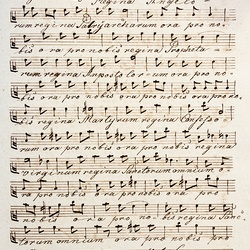 Regina Angelo
rum regina Patriarcharum ora pro no-
bis ora pro nobis regina Propheta-
rum regina Aposto lor-um ora pro no-
bis ora pro nobis ora pro nobis ora pro no
bis regina Martyrum regina Confeso-
rum ora pro nobis ora pro nobis regina
Virginum regina Sanctorum omnium o-
ra pro nobis ora pro nobis ora pro
nobis ora pro no-bis regina Sanc-
torum omnium ora pro nobis ora pro